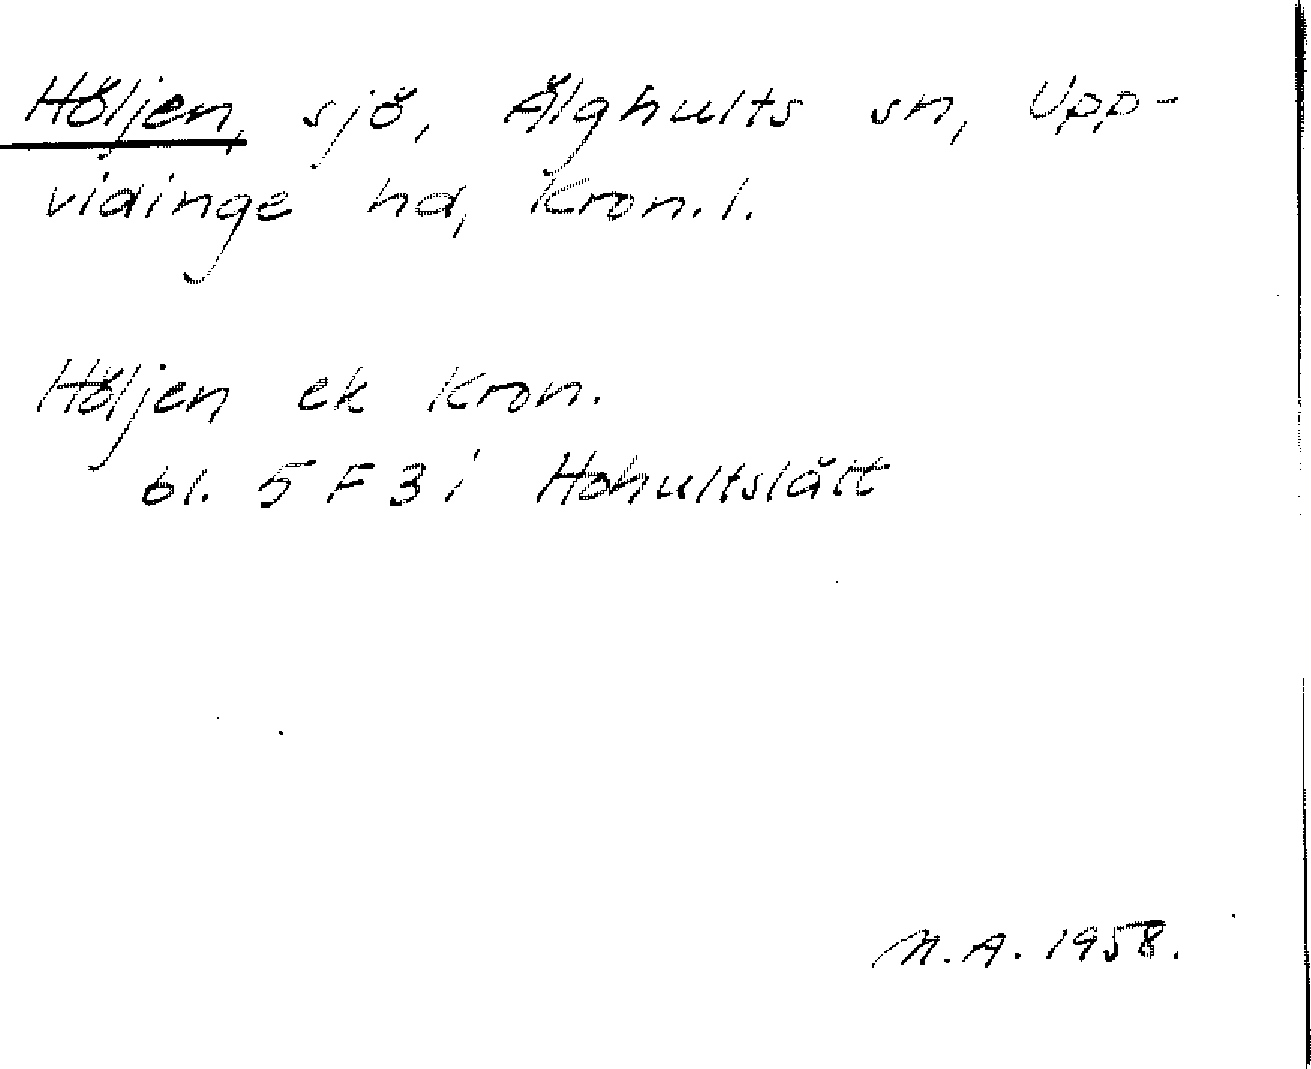 Höljen, sjö, Älghults sn, Upp-
vidinge hd, Kron. l.
Höljen ek Kron.
bl. 5 F 3 i Hohultslätt
N. A. 1958.